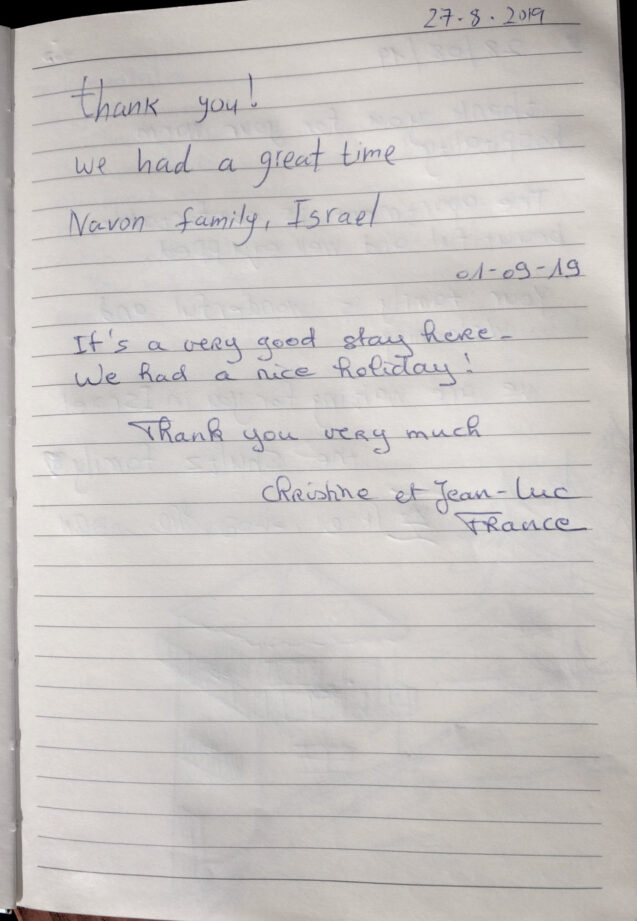 27-8-2019
thank you!
we had a great time
Navon family, Israel
01-09-19
It's a very good stay here-
We had a nice holiday!
Thank you very much
Christine et Jean-Luc
France